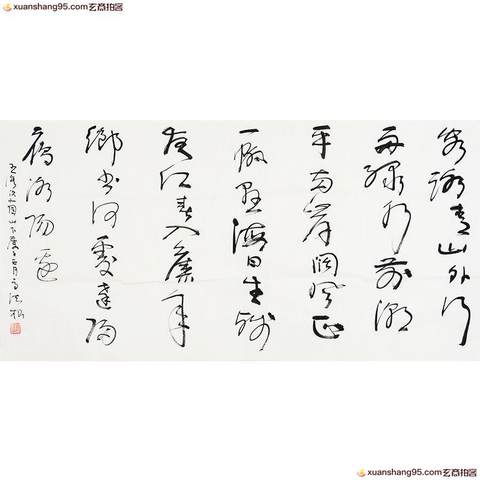 xuanshang95.com玄商拍客
客路青山外行
舟绿水前潮
平两岸阔风正
一帆悬海日生残
夜江春入舊年
鄉书何處達归
雁洛阳邊
王湾次北固山下庚子
xuanshang95.com玄商拍客